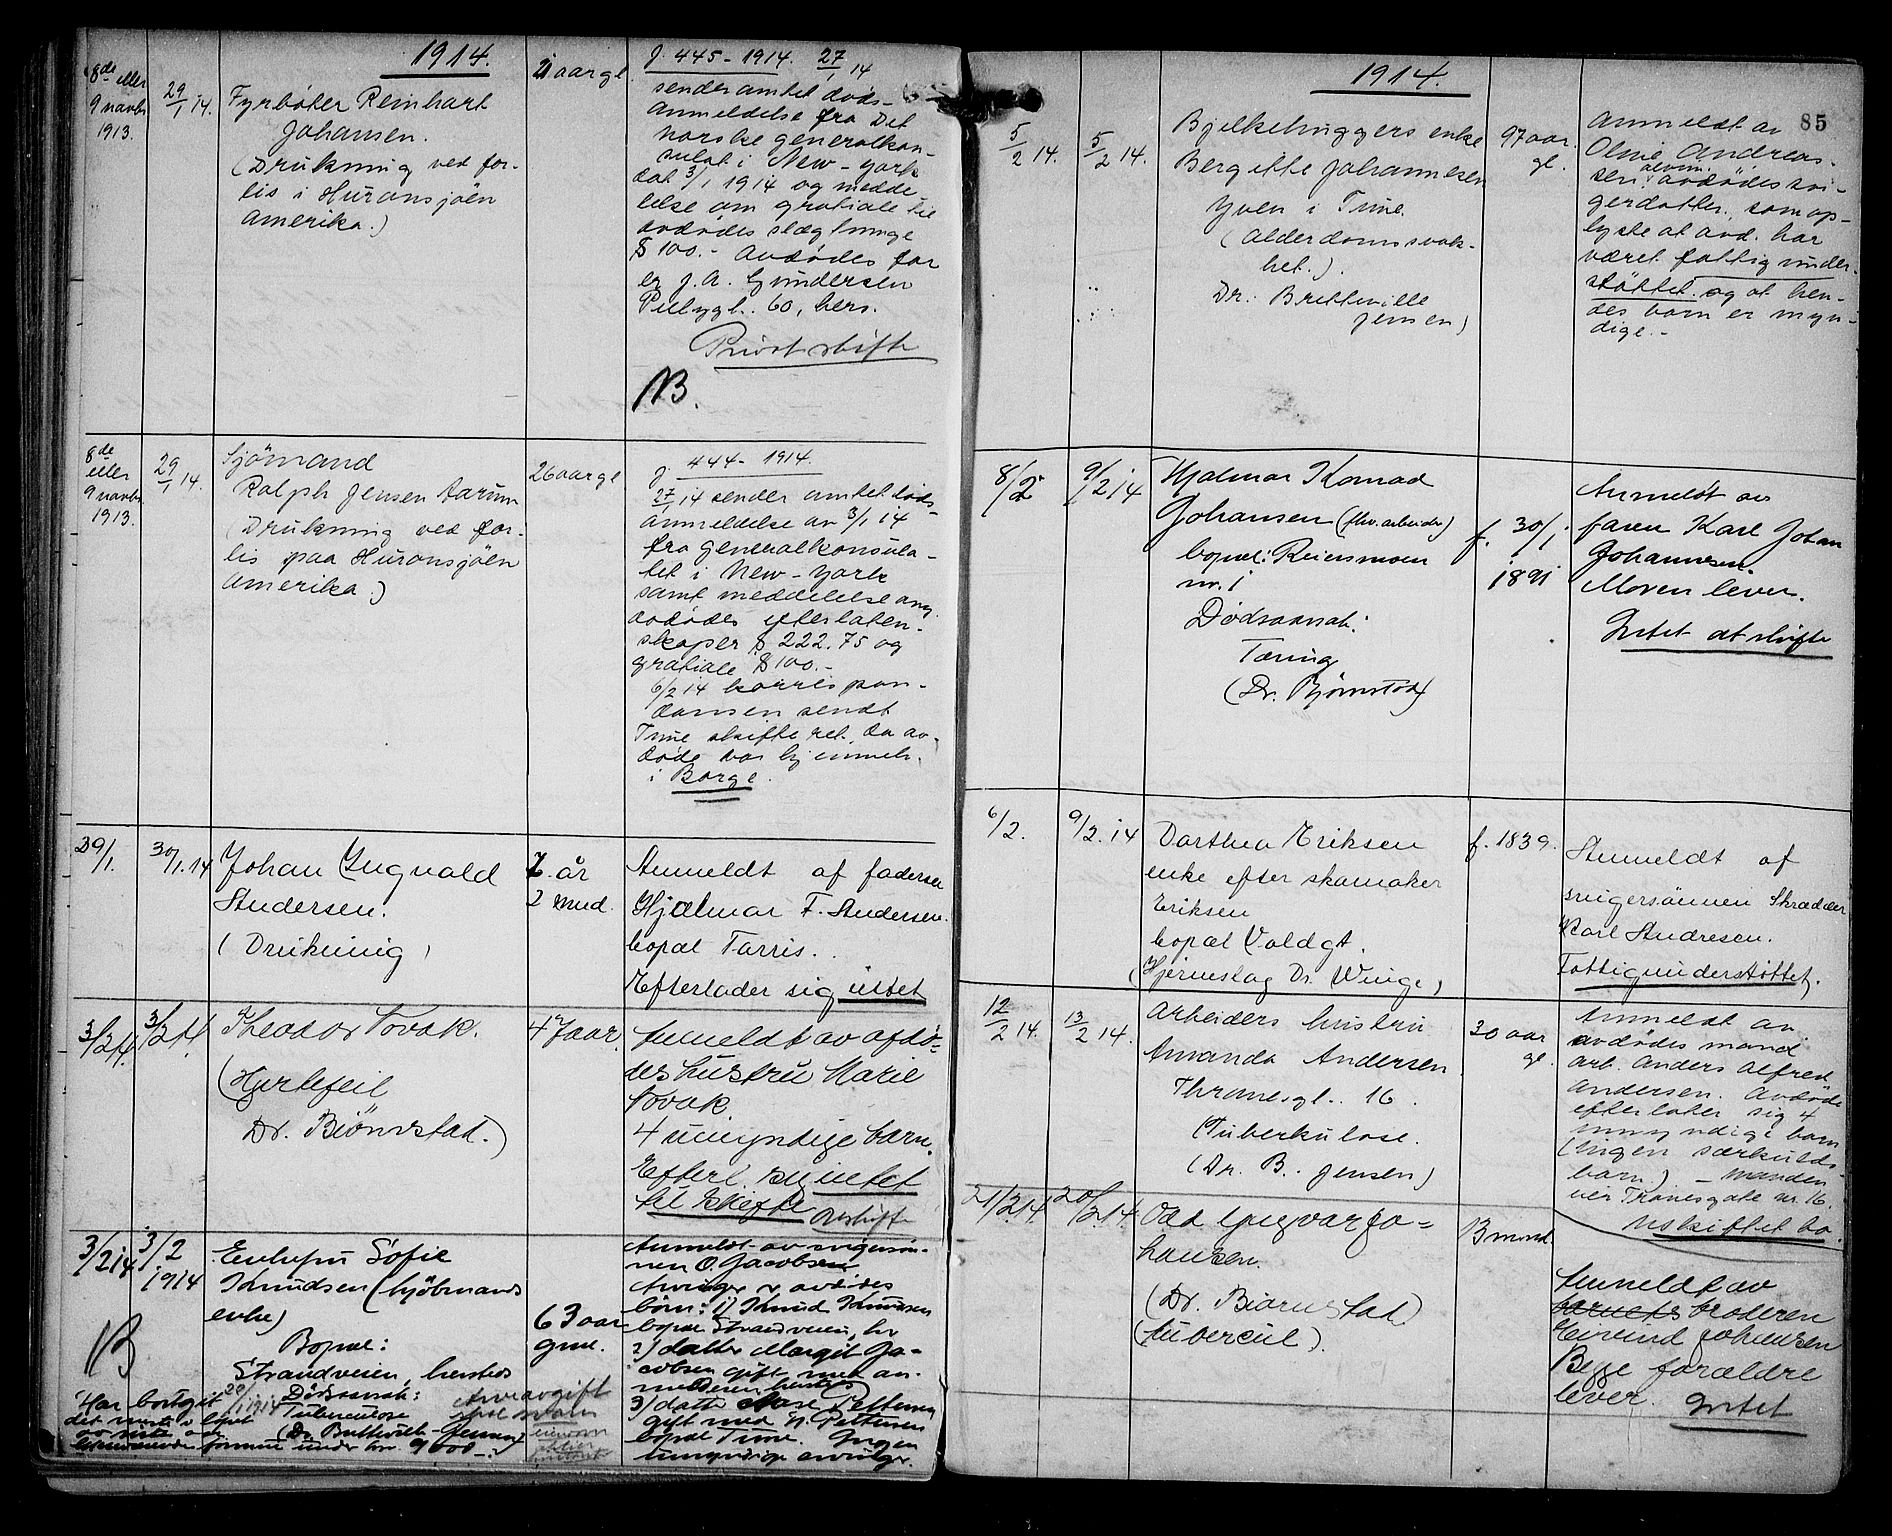 1914.
8de eller
9 novbr
1913.
29/1 14.
Fyrböter Reinhart
Johansen.
(Drukning ved for-
lis i Huronsjöen
Amerika.)
21 aar gl.
J. 445 - 1914. 27/1 14
sender amtet döds-
anmeldelse fra Det
norske generalkon-
sulat i New-York
dat 3/1 1914 og medde
lelse om gratiale til
avdödes slægtninge
$ 100.- Avdödes far
er J. A. Gundersen
60, hers.
Privat skifte
NB.
8de
eller
9 novbr.
1913.
29/1 14.
Sjömand
Ralph Jensen Aarum
(Drukning ved for-
lis paa Huronsjöen
Amerika.)
26 aar gl
J. 444 - 1914.
27/1 14 sender amtet döds-
anmeldelse av 3/1 14
fra generalkonsula-
tet i New-York
samt meddelelse ang.
avdödes efterlaten-
skaper $ 222.75 og
gratiale $ 100.-
6/2 14 korrespon-
dansen sendt
Tune skifteret, da av-
döde var hjemmeh.
i Borge.
29/1.
30/1.14
Johan Ingvald
Andersen.
(Drukning)
7 år
2 mnd.
Anmeldt af faderen
Hjalmar F. Andersen.
bopæl Tarris.
Efterlader sig intet
3/2 14.
3/2 14
Theodor Novak.
(Hjertefeil
Dr. Biörnstad.)
47 aar.
Anmeldt av afdö-
des hustru Marie
Novak.
4 umyndige barn.
Efterl. sig intet
til skifte
Avskifte
3/2 14
3/2
1914
Sofie
Knudsen (kjöbmands
enke)
Bopæl:
Strandveien, hersteds
Dödsaarsak:
Tuberculose
(Dr. Bretteville-Jensen)
B
63 aar
gml.
Har bortgit
formue under kr 9000.-
Arveavgift
Anmeldt av svigersön-
nen O. Jacobsen
Arvinger er avdödes
börn: 1) Knud Knudsen
bopæl Strandveien, hr
2) datter Margit Ja-
cobsen gift med an-
melderen, hersteds
3) datter Aase Pettersen
gift med H. Pettersen
bopæl Tune. Ingen
umyndige arvinger.
1914.
85
5/2 14.
5/2 14.
Bjelkehuggers enke
Bergitte Johannesen
Yven i Tune.
(Alderdomssvak-
het.).
Dr. Bretteville
Jensen)
97 aar.
gl.
Anmeldt av
Oline Andreas-
sen, avdödes svi-
gerdatter, som op-
lyste at avd. har
været fattigunder-
stöttet og at hen-
des barn er myn-
dige.-
8/2
9/2 14
Hjalmar Konrad
Johansen (fhv. arbeider)
bopæl: Reiersmoen
nr. 1
Dödsaarsak:
Tæring
(Dr. Björnstad)
f. 30/1.
1891
Anmeldt av
faren Karl Johan
Johannesen
Moren lever.
Intet at skifte
6/2.
9/2.14
Dorthea Eriksen
enke efter skomaker
Eriksen
bopæl Voldgt.
(Hjerneslag Dr. Winge)
f. 1839.
Anmeldt af
svigersönnen Skrædder
Karl Andresen.
Fattigunderstöttet.
12/2 14.
13/2 14.
Arbeiders hustru
Amanda Andersen
Thranesgt. 16.
(Tuberkulose.
(Dr. B. Jensen)
30 aar
gl.
Anmeldt av
avdödes mand
arb. Anders Alfred
Andersen. Avdöde
efterlater sig 4
umyndige barn
(ingen særkulds
barn.) - Manden
Tranesgate nr. 16.
Uskiftet bo.
21/2 14.
20/2 14.
Odd Yngvar Jo-
hansen.
(Dr. Biörnstad)
(tubercul).
3 mnd.
Anmeldt av
barnets broderen
Eivind Johansen
Begge forældre
lever.
Intet